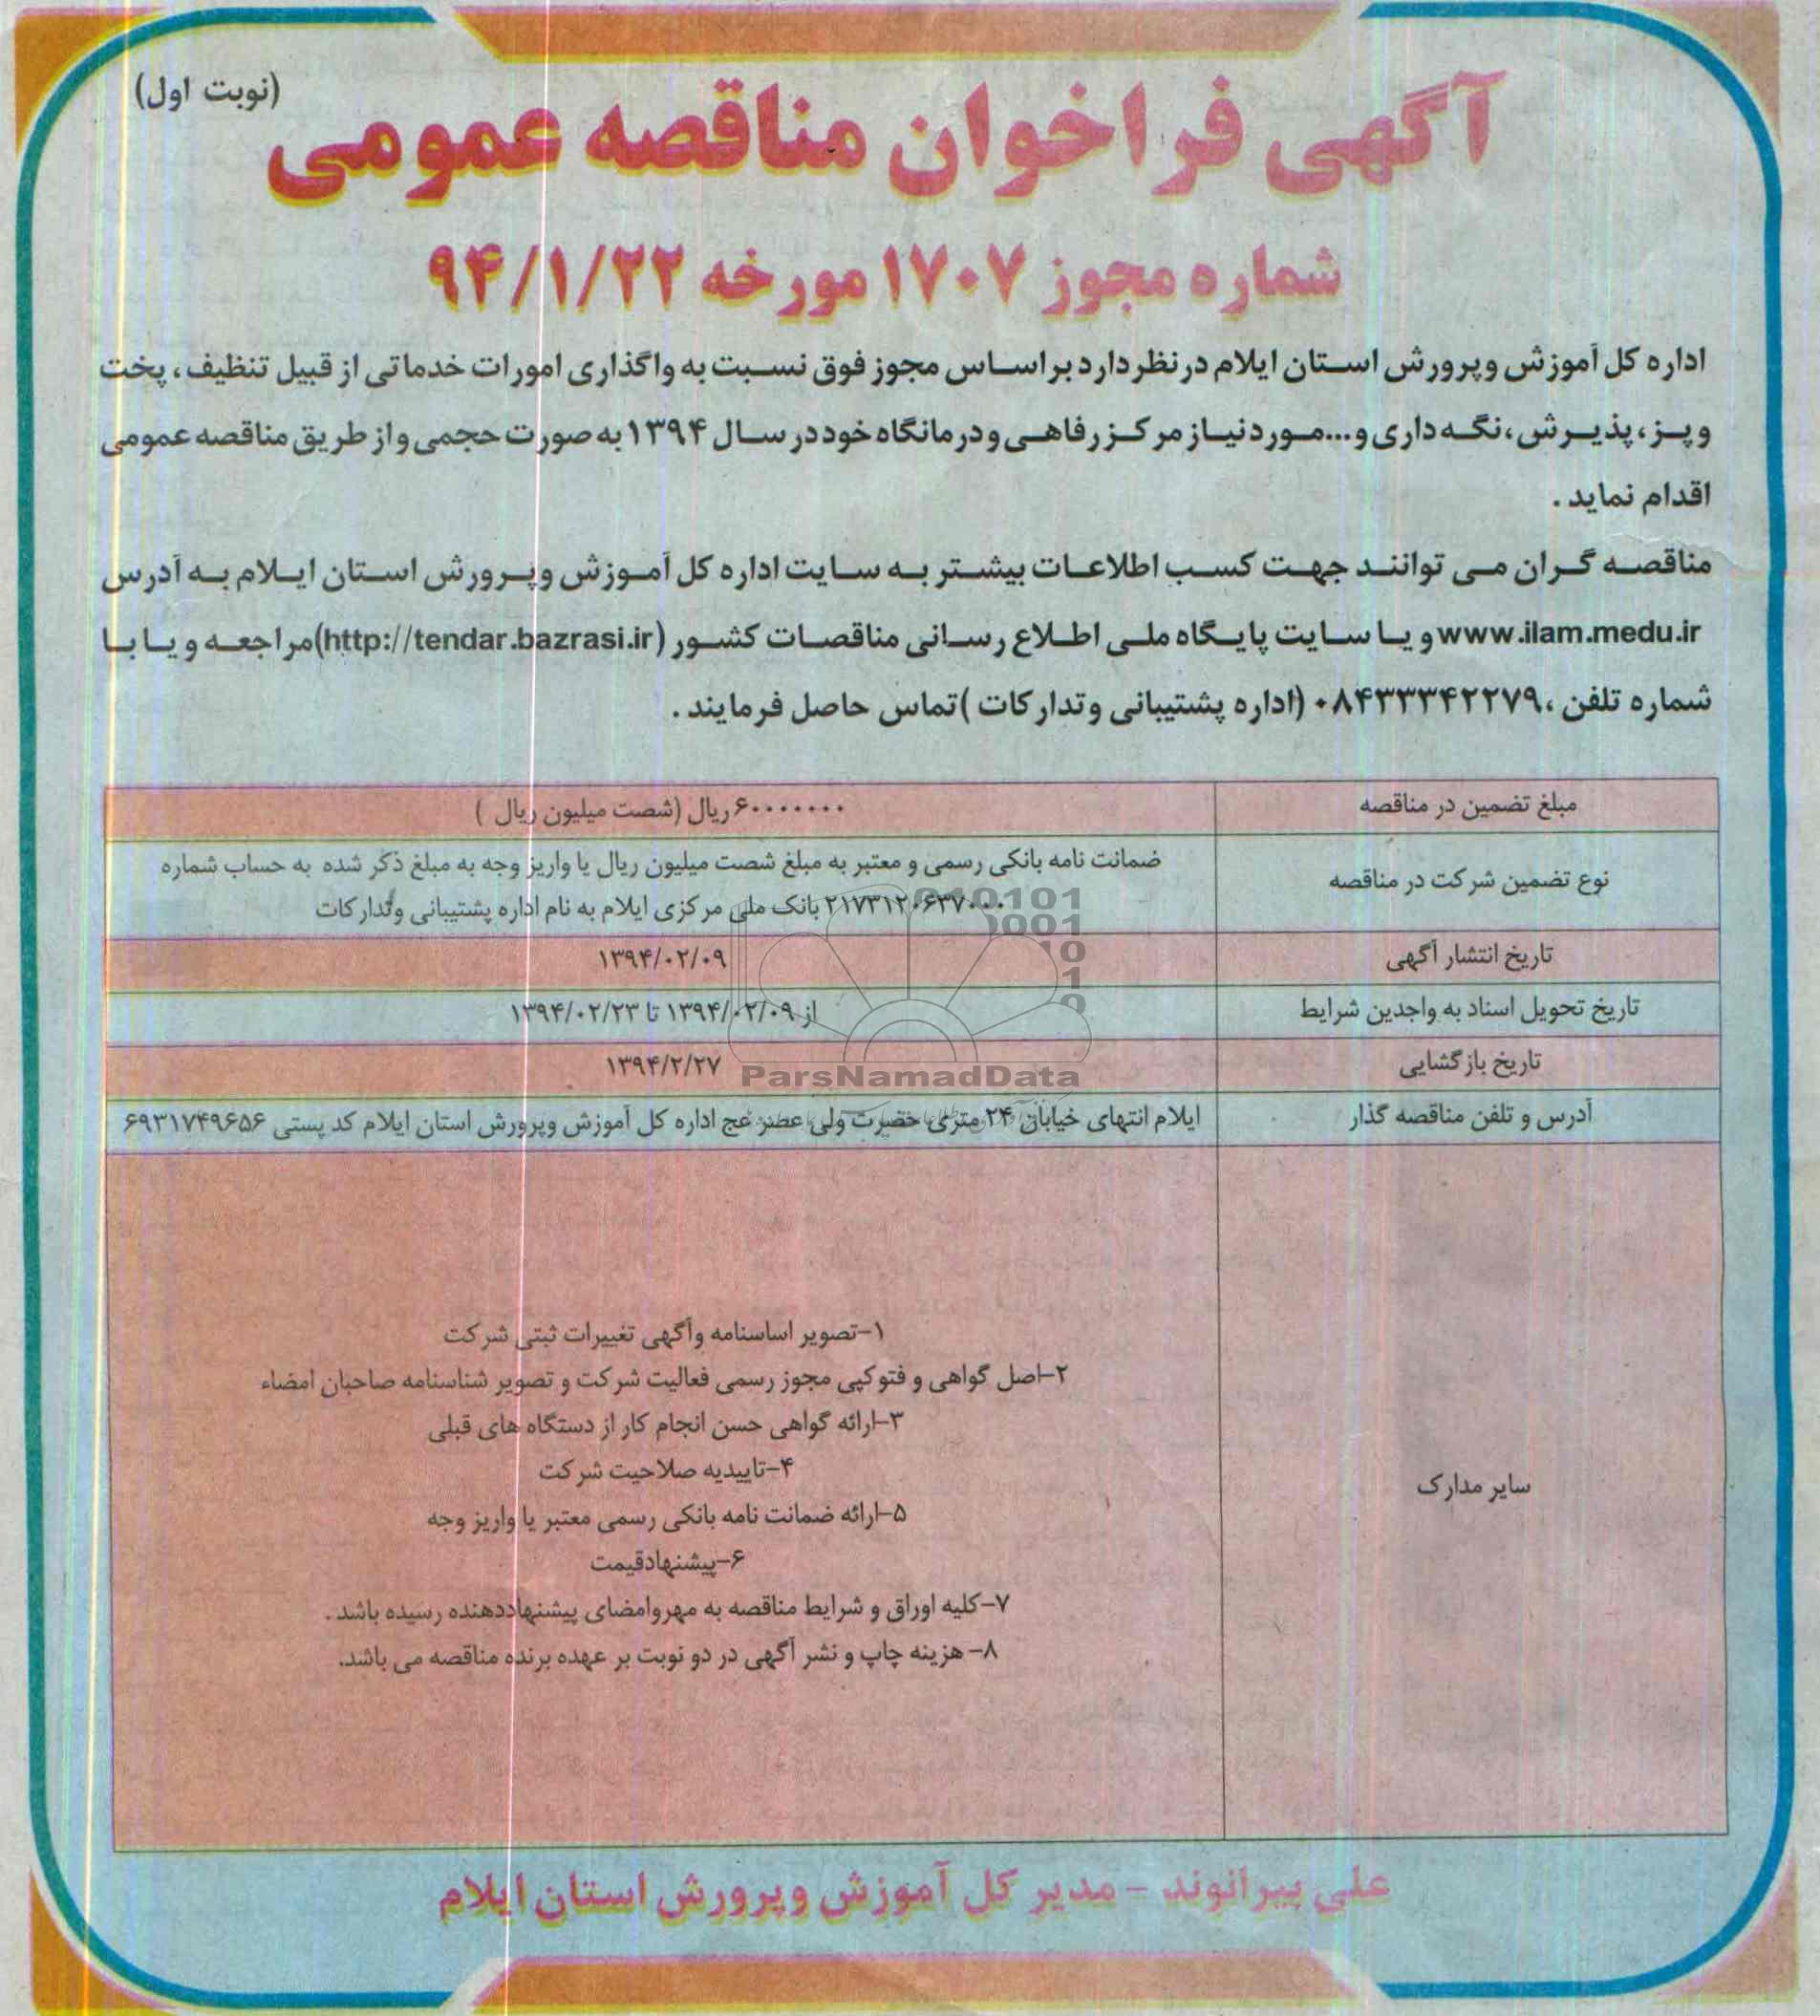 (نوبت اول)
آگهی فراخوان مناقصه عمومی
شماره مجوز ۱۷۰۷ مورخه ۹۴/۱/۲۲
اداره کل آموزش وپرورش استان ایلام در نظر دارد بر اساس مجوز فوق نسبت به واگذاری امورات خدماتی از قبیل تنظیف، پخت
و پز، پذیرش، نگه داری و... مورد نیاز مرکز رفاهی و درمانگاه خود در سال ۱۳۹۴ به صورت حجمی و از طریق مناقصه عمومی
اقدام نماید .
مناقصه گران می توانند جهت کسب اطلاعات بیشتر به سایت اداره کل آموزش وپرورش استان ایلام به آدرس
www.ilam.medu.ir و یا سایت پایگاه ملی اطلاع رسانی مناقصات کشور (http://tendar.bazrasi.ir) مراجعه و یا با
شماره تلفن ،۰۸۴۳۳۳۴۲۲۷۹ (اداره پشتیبانی وتدارکات )تماس حاصل فرمایند .
مبلغ تضمین در مناقصه
۶۰۰۰۰۰۰۰ ریال (شصت میلیون ریال )
نوع تضمین شرکت در مناقصه
ضمانت نامه بانکی رسمی و معتبر به مبلغ شصت میلیون ریال یا واریز وجه به مبلغ ذکر شده به حساب شماره
۲۱۷۳۱۲۰۶۳۷۰۰۰ بانک ملی مرکزی ایلام به نام اداره پشتیبانی وتدارکات
تاریخ انتشار آگهی
۱۳۹۴/۰۲/۰۹
تاریخ تحویل اسناد به واجدین شرایط
از ۱۳۹۴/۰۲/۰۹ تا ۱۳۹۴/۰۲/۲۳
تاریخ بازگشایی
۱۳۹۴/۲/۲۷
ParsNamadData
آدرس و تلفن مناقصه گذار
ایلام انتهای خیابان ۲۴ متری حضرت ولی عصر عج اداره کل آموزش وپرورش استان ایلام کد پستی ۶۹۳۱۷۴۹۶۵۶
سایر مدارک
۱-تصویر اساسنامه وآگهی تغییرات ثبتی شرکت
۲-اصل گواهی و فتوکپی مجوز رسمی فعالیت شرکت و تصویر شناسنامه صاحبان امضاء
۳-ارائه گواهی حسن انجام کار از دستگاه های قبلی
۴-تاییدیه صلاحیت شرکت
۵-ارائه ضمانت نامه بانکی رسمی معتبر یا واریز وجه
۶-پیشنهادقیمت
۷-کلیه اوراق و شرایط مناقصه به مهروامضای پیشنهاددهنده رسیده باشد .
۸- هزینه چاپ و نشر آگهی در دو نوبت بر عهده برنده مناقصه می باشد.
علی بیرانوند - مدیر کل آموزش وپرورش استان ایلام